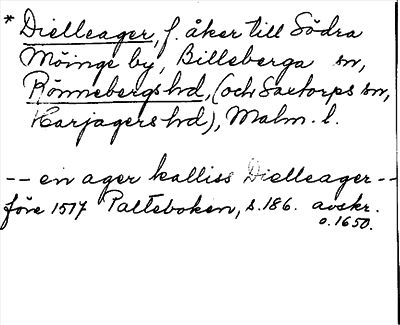 * Dielleager, f. åker till Södra
Möinge by, Billeberga sn,
Rönnebergs hd, (och Saxtorps sn,
Harjagers hd), Malm. l.
-- en ager kalliss Dielleager --
före 1517 Palteboken, s. 186. avskr.
o. 1650.